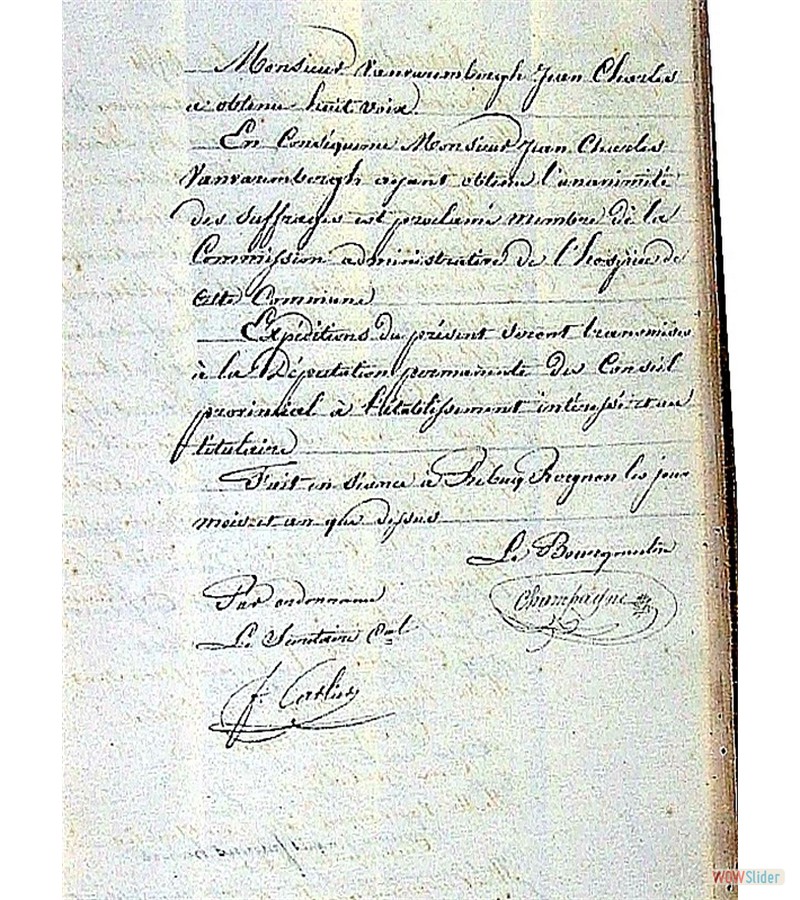 Monsieur Vanvarembergh Jean Charles
a obtenu huit voix.
En Conséquence Monsieur Jean Charles
Vanvarembergh ayant obtenu l'unanimité
des suffrages est proclamé membre de la
Commission administrative de l'hospice de
cette Commune
Expéditions du présent seront transmises
à la Députation permanente du Conseil
provincial à l'établissement intéressé et au
titulaire
Fait en séance à Rebecq Rognon les jour
mois et an que dessus
Le Bourgmestre
Champagne
Par ordonnance
Le Secrétaire Cmal
J. Carlier
WOWSlider